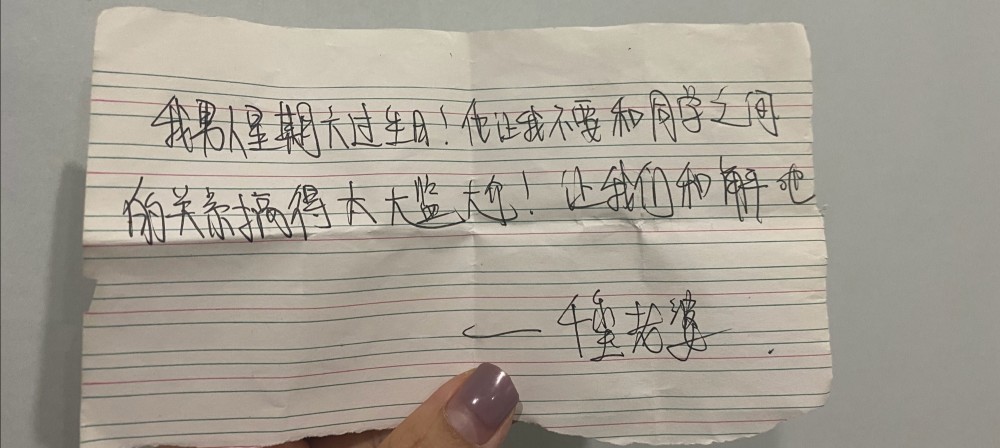 我男人星期六过生日！他让我不要和同学之间
的关系搞得太尴尬！让我们和解吧
—千玺老婆.